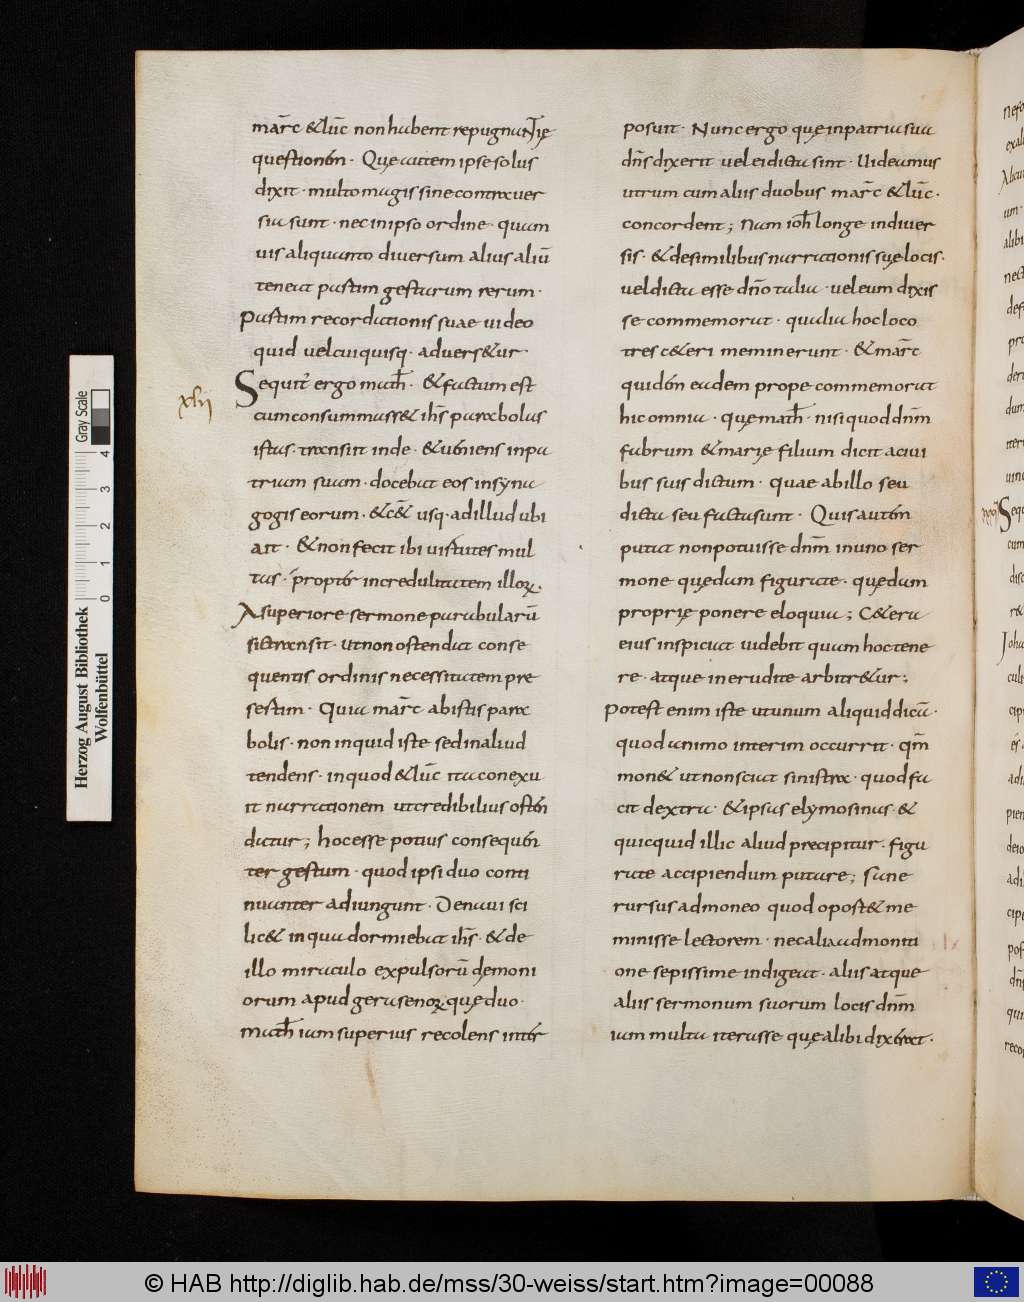 mar̄c & lūc non habent repugnantię
questionēm. Quę autem ipse solus
dixit. multo magis sine controuer
sia sunt. nec in ipso ordine. quam
uis aliquanto diuersum alius aliū
teneat passim gestarum rerum.
Passim recordationis suae uideo
quid uel cui quisq. aduers&ur.
xlii
Sequit̄ ergo math̄. & factum est
cum consummass& ih̄s parabolas
istas. transiit inde. & ueniens in pa
triam suam. docebat eos in syna
gogis eorum. & c&̄ usq. ad illud ubi
ait. & non fecit ibi uirtutes mul
tas. propter incredulitatem illoꝝ.
A superiore sermone parabularū
sic transit. ut non ostendat conse
quentis ordinis necessitatem pre
sertim. Quia mar̄c ab istis para
bolis. non in quid iste sed in aliud
tendens. in quod & lūc ita conexu
it narrationem ut credibilius osten
datur; hoc esse potius consequen
ter gestum. quod ipsi duo conti
nuanter adiungunt. Denaui sci
lic& in qua dormiebat ih̄s. & de
illo miraculo expulsorū demoni
orum apud gerasenoꝝ. quę duo.
math̄ iam superius recolens inter
posuit. Nunc ergo quę in patria sua
dn̄s dixerit uel ei dicta sint. Uideamus
utrum cum aliis duobus mar̄c & lūc.
concordent; Nam ioh̄ longe in diuer
sis. & desimilibus narrationis suę locis.
uel dicta esse dn̄o talia. uel eum dixis
se commemorat. qualia hoc loco
tres c&eri meminerunt. & mar̄c
quidem eadem prope commemorat
hic omnia. quę math̄. nisi quod dn̄m
fabrum & marię filium dicit a ciui
bus suis dictum. quae ab illo seu
dicta seu facta sunt. Quis autem
putat non potuisse dn̄m in uno ser
mone quędam figurate. quędam
proprię ponere eloquia; C&era
eius inspiciat uidebit quam hoc tene
re. atque inerudite arbitr&ur;
Potest enim iste ut unum aliquid dicā.
quod animo interim occurrit. qm̄
mon& ut non sciat sinistra. quod fa
cit dextra. & ipsas elymosinas. &
quicquid illic aliud precipitur. figu
rate accipiendum putare; Sane
rursus admoneo quod oport& me
minisse lectorem. nec alia admoniti
one sepissime indigeat. aliis atque
aliis sermonum suorum locis dn̄m
iam multa iterasse quę alibi dixerat.
Herzog August Bibliothek
Wolfenbüttel
0 1 2 3 4
Gray Scale
© HAB http://diglib.hab.de/mss/30-weiss/start.htm?image=00088